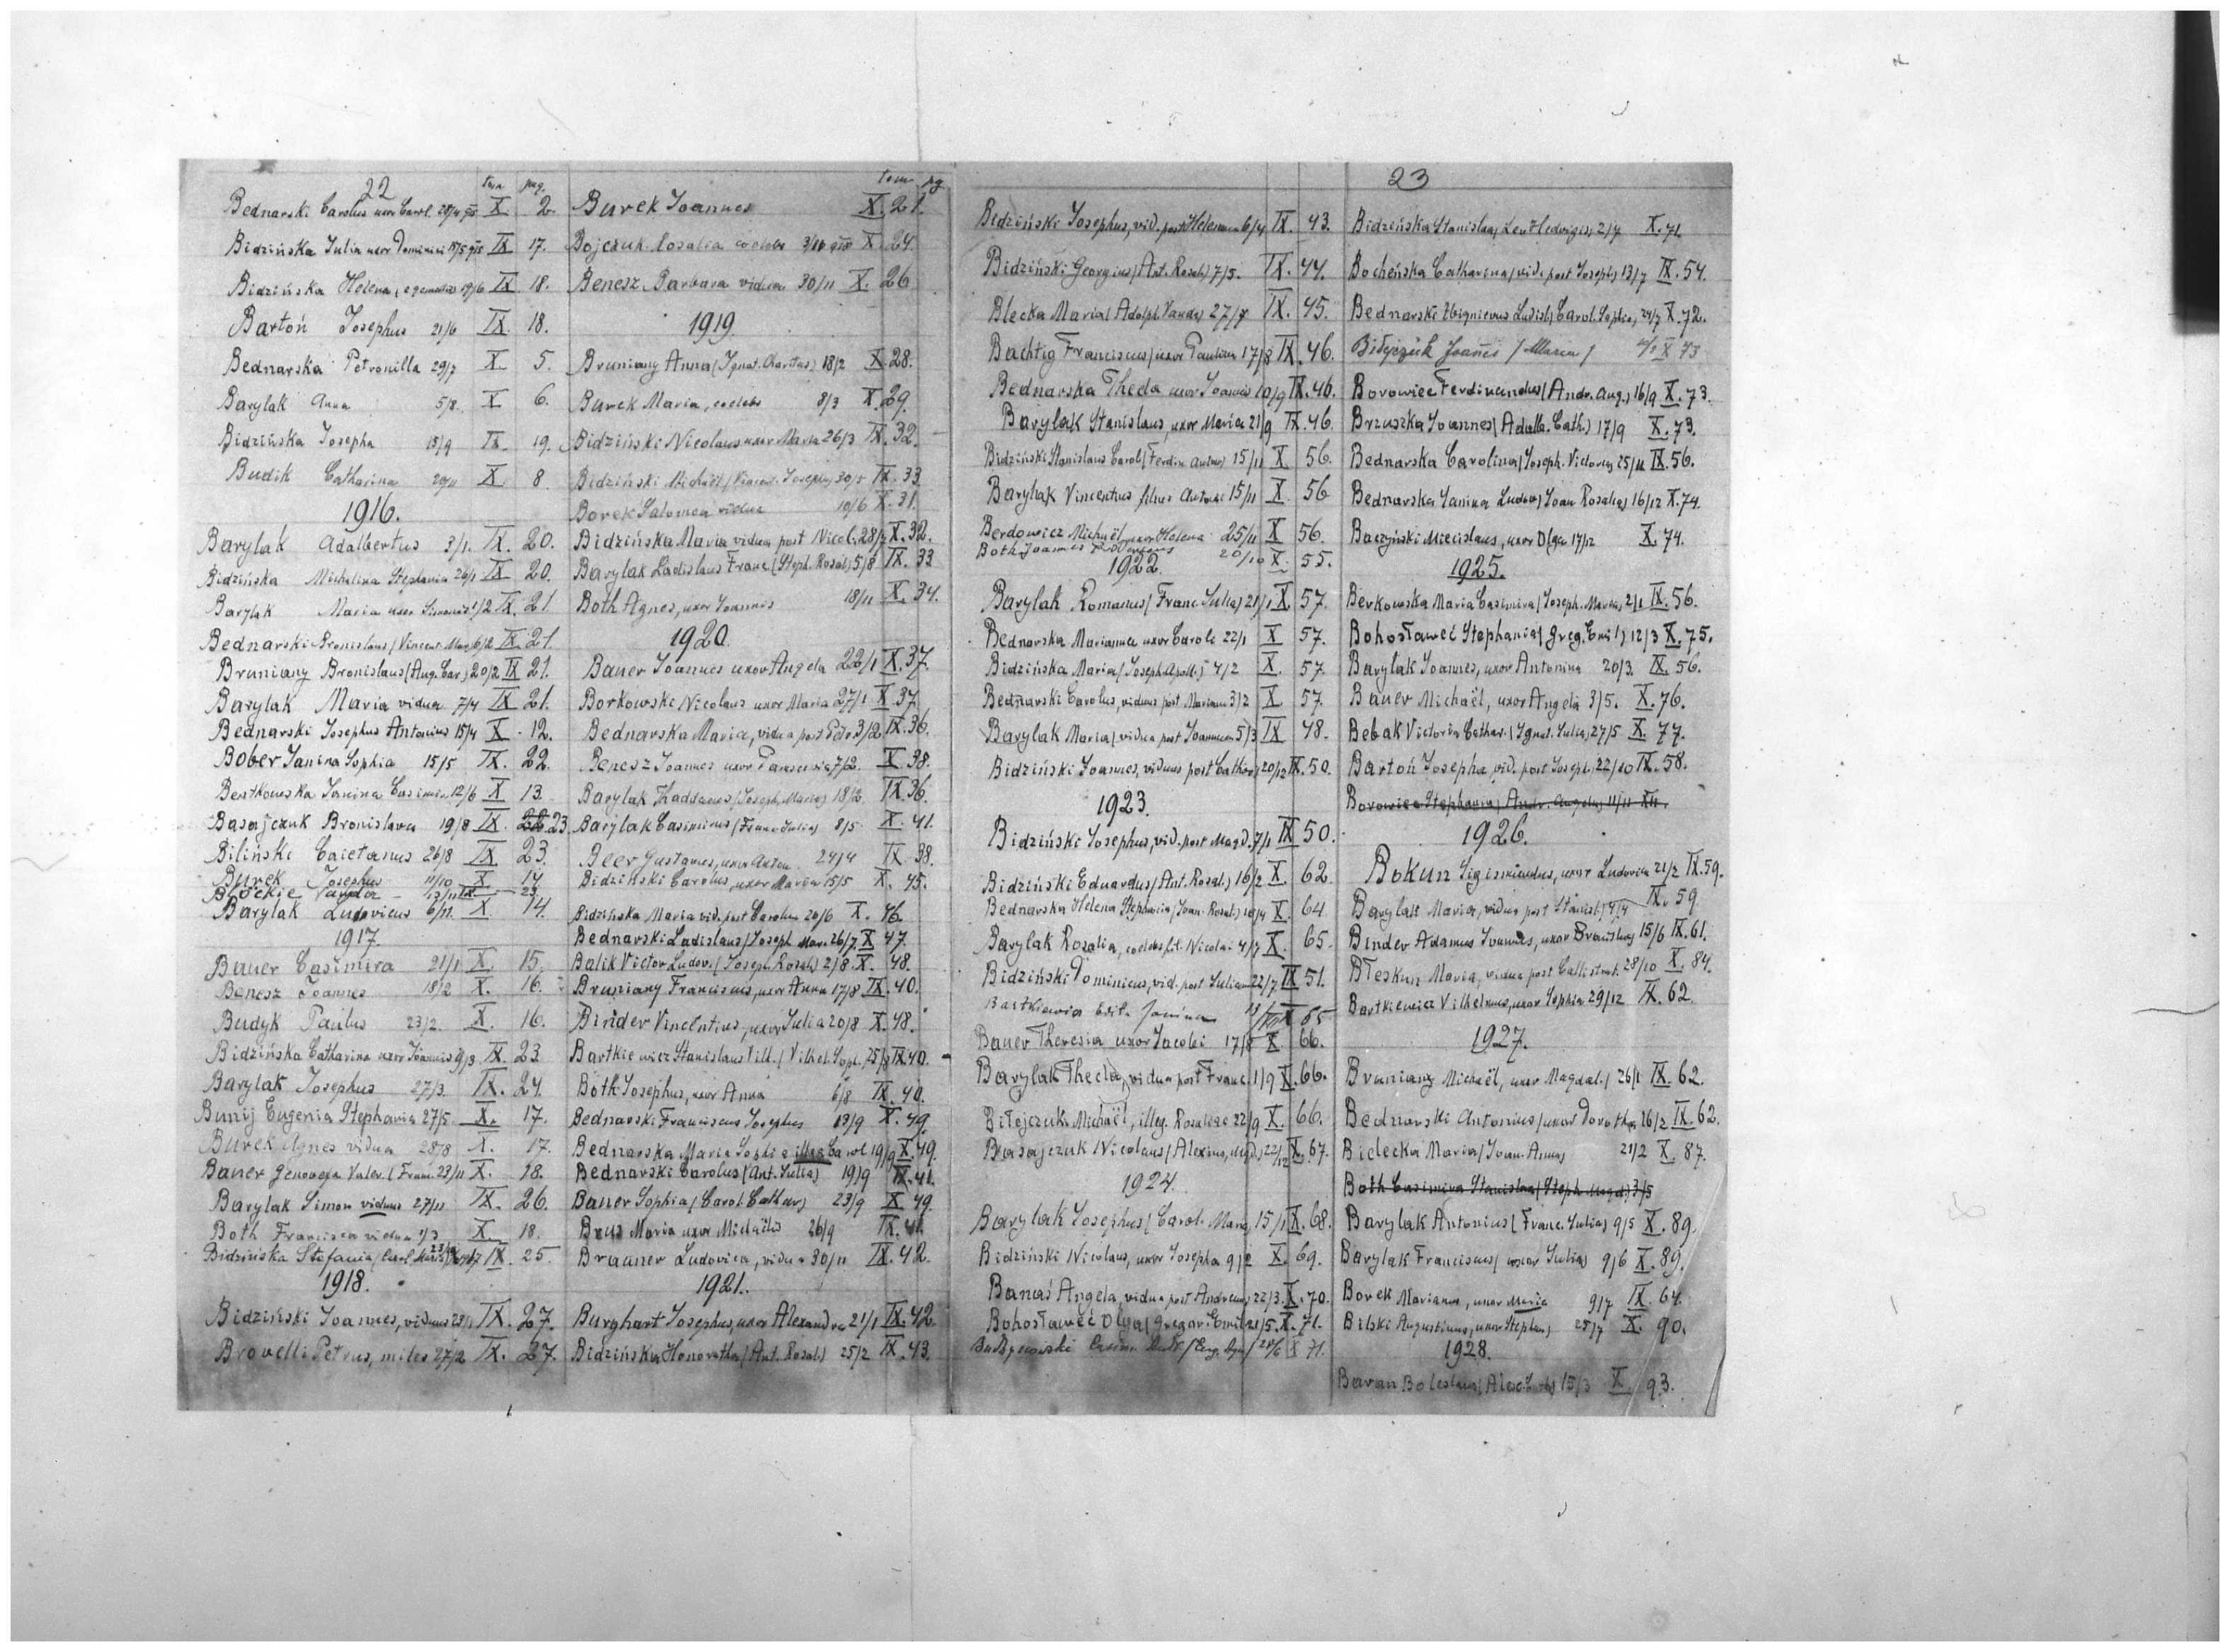 22
tom pag.
Bednarski Carolus uxor Carol. X 2.
Bidzińska Julia uxor Dominici 15/5 IX 17.
Bidzińska Helena, e gemellis 19/6 IX 18.
Bartoń Josephus 21/6 IX. 18.
Bednarska Petronilla 29/7 X. 5.
Barylak Anna 5/8. X 6.
Bidzińska Josepha 15/9 IX. 19.
Budik Catharina X 8
1916.
Barylak Adalbertus 3/1. IX. 20.
Bidzińska Michalina Stephania 26/1 IX 20.
Barylak Maria uxor Simonis 1/2 IX. 21
Bednarski Bronislaus/Vincent. Mar. 6/2 IX. 21.
Bruniany Bronislaus (Aug. Car.) 20/2 IX 21.
Barylak Maria vidua 7/4 IX 21.
Bednarski Josephus Antonius 15/4 X. 12.
Bober Janina Sophia 15/5 IX. 22.
Janina Casimira 12/6 X 13.
Basajczuk Bronislava 19/8 IX. 23
Biliński Caietanus 26/8 IX. 23.
Burek Josephus 11/10 X. 14
Vanda 23
Barylak Ludovicus 6/11. X. 14.
1917.
Bauer Casimira 21/1 X. 15.
Benesz Joannes 18/2 X. 16.
Budyk Paulus 23/2. X. 16.
Bidzińska Catharina uxor Joannis 9/3 IX. 23.
Barylak Josephus 27/3. IX. 24.
Bunij Eugenia Stephania 27/5. X. 17.
Burek Agnes vidua 28/8 X. 17.
Bauer Genovefa Valer. (Franc. 23/11 X. 18.
Barylak Simon viduus 27/11 IX. 26.
Both Francisca vidua X. 18.
Bidzińska Stefania IX. 25.
1918.
Bidzinski Joannes, viduus IX. 27.
Brovelli Petrus, miles 27/2 IX. 27.
tom pg
Burek Joannes X. 21.
Bojczuk Rosalia coelebs X. 24.
Benesz Barbara vidua 30/11 X. 26
1919.
Bruniany Anna (Ignat. Charitas) 18/2 X. 28.
Burek Maria, coelebs 8/3 X. 29.
Bidziński Nicolaus uxor Maria 26/3 IX. 32.
Bidziński Michaël 30/5 IX. 33
Borek Salomea vidua 10/6 X. 31.
Bidzińska Maria vidua post Nicol. X. 32.
Barylak Ladislaus Franc. (Steph. Rosal.) 5/8 IX. 33
Both Agnes, uxor Joannis 18/11 X. 34.
1920.
Bauer Joannes uxor Angela 22/1 X. 37.
Borkowski Nicolaus uxor Maria 27/1 X. 37.
Bednarska Maria, vidua post IX. 36.
Benesz Joannes uxor Parascevia 7/2. X. 38.
Barylak Thaddaeus (Joseph. Maria) 18/2. IX. 36.
Barylak Casimirus (Franc. Julia) 8/5. X. 41.
Beer Gustavus, uxor Anton. 24/4 IX. 38.
Bidziński Carolus, uxor Maria 15/5 X. 45.
Bidzińska Maria vid. post Carolum 20/6 X. 46.
Bednarski Ladislaus/Joseph. Mar. 26/7. X 47.
Balik Victor Ludov. (Joseph. Rosal.) 2/8. X. 48.
Bruniany Franciscus, uxor Anna 17/8 IX. 40.
Binder Vincentius, uxor Julia 20/8 X. 48.
Bartkiewicz Stanislaus Vilh./Vilhel. Soph. 25/8 IX. 40.
Both Josephus, uxor Anna 6/8 IX. 40.
Bednarski Franciscus Josephus 13/9 X. 49.
Bednarska Maria Sophia illeg. Carol. 19/9 X. 49.
Bednarski Carolus (Ant. Julia) 19/9 IX. 41.
Bauer Sophia (Carol. Cathar.) 23/9 X. 49.
Brus Maria uxor Michaëlis 26/9 IX. 41.
Brauner Ludovica, vidua 30/11 IX. 42.
1921.
Burghart Josephus, uxor Alexandra 21/1 IX. 42.
Bidzińska Honoratha (Ant. Rosal.) 25/2 IX. 43.
23
Bidziński Josephus, vid. post Helenam 6/4 IX. 43.
Bidziński Georgius (Ant. Rosal.) 7/5. IX. 44.
Blecka Maria (Adolph. Vanda) IX. 45.
Bachtig Franciscus/uxor Paulina 17/8 IX. 46.
Bednarska Thecla uxor Joannis 10/9 IX. 46.
Barylak Stanislaus, uxor Maria 21/9 IX. 46.
Bidziński Stanislaus Carol. 15/11 X 56.
Barylak Vincentius filius Antonii 15/11 X. 56
Berdowicz Michaël, uxor Helena 25/11 X 56.
Both Joannes 20/10 X. 55.
1922.
Barylak Romanus (Franc. Julia) 21/1 X 57.
Bednarska Marianna uxor Caroli 22/1 X 57.
Bidzińska Maria (Joseph. Apoll.) 4/2 X. 57.
Bednarski Carolus, viduus post Mariann. 3/2 X 57.
Barylak Maria (vidua post Joannem 5/3 IX 48.
Bidziński Joannes, viduus post Cathar. 20/12 IX. 50.
1923.
Bidziński Josephus, vid. post Magd. 7/1 IX 50.
Bidziński Eduardus (Ant. Rosal.) 16/2 X. 62.
Bednarska Helena Stephania (Joan. Rosal.) X. 64.
Barylak Rosalia, coelebs fil. Nicolai 4/7 X. 65.
Bidziński Dominicus, vid. post Juliam 22/7 IX 51.
Janina 65
Bauer Theresia uxor Jacobi 17/8 X. 66.
Barylak Thecla, vidua post Franc. 1/9 X. 66.
Biłejczuk Michaël, illeg. Rosaliae 22/9 X. 66.
Basajczuk Nicolaus (Alexius, Magd.) 22/12 X. 67.
1924.
Barylak Josephus (Carol. Maria) 15/1 X. 68.
Bidziński Nicolaus, uxor Josepha 9/2 X. 69.
Banaś Angela, vidua post Andream 22/3. X. 70.
Bohosławeć Olga (Gregor. Emil. 21/5. X. 71.
28/6 X 71.
Bidzińska Stanislaa, Leu. Hedvigis 2/7 X. 71.
Bocheńska Catharina, vid. post Joseph. 13/7 IX. 54.
Bednarski Zbignievus Ladisl. (Carol. Sophia) 24/7 X. 72.
Biłejczuk Joannes / Maria / X 73
Borowiec Ferdinandus (Andr. Aug.) 16/9 X. 73.
Brzuszka Joannes (Adalb. Cath.) 17/9 X. 73.
Bednarska Carolina (Joseph. Victoria) 25/11 IX. 56.
Bednarska Janina Ludov. (Joan. Rosalia) 16/12 X. 74.
Baczyński Miecislaus, uxor Olga 17/12 X. 74.
1925.
Berkowska Maria Casimira (Joseph. Maria) 2/1 IX. 56.
Bohosławeć Stephania (Greg. Emil.) 12/3 X. 75.
Barylak Joannes, uxor Antonina 20/3. IX. 56.
Bauer Michaël, uxor Angela 3/5. X. 76.
Bebak Victoria Cathar. (Ignat. Julia) 27/5 X. 77.
Bartoń Josepha vid. post Joseph. 22/10 IX. 58.
Borowiec Stephania (Andr. Angela) 11/11
1926.
Bokun Sigismundus, uxor Ludovica 21/2 IX. 59.
Barylak Maria, vidua post Stanisl. 4/4 IX. 59.
Binder Adamus Joannes, uxor 15/6 IX. 61.
Błeskun Maria, vidua post Callistrat. 28/10 X. 84.
Bartkiewicz Vilhelmus, uxor Sophia 29/12 IX. 62.
1927.
Bruniany Michaël, uxor Magdal. 26/1 IX. 62.
Bednarski Antonius (uxor Dorothea 16/2 IX. 62.
Bielecka Maria (Joan. Anna) 21/2 X. 87.
Both Casimira Stanislaa (Steph. Magd.) 3/5
Barylak Antonius (Franc. Julia) 9/5 X. 89.
Barylak Franciscus (uxor Julia) 9/6 X. 89.
Borek Marianus, uxor Maria 9/7 IX. 64.
Bilski Augustinus, uxor Stephan. 25/7 X. 90.
1928.
Baran Boleslaus 15/3 X. 93.